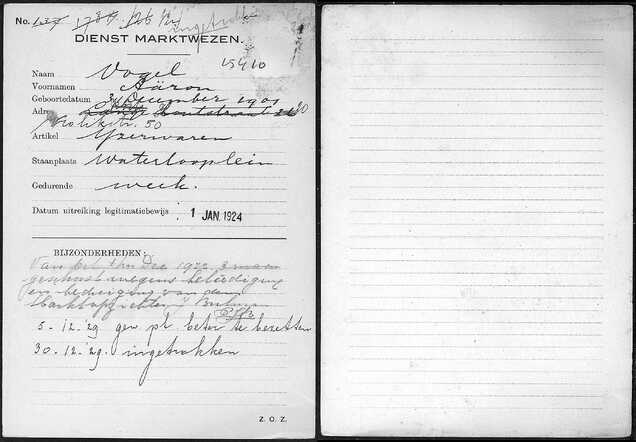 No. 137 1730 126 ingetrokken
DIENST MARKTWEZEN.
15410
Naam Vogel
Voornamen Aäron
Geboortedatum 3 December 1901
Adres Lange Houtstraat
50
Artikel Yzerwaren
Staanplaats Waterlooplein
Gedurende week.
Datum uitreiking legitimatiebewijs: 1 JAN. 1924
BIJZONDERHEDEN:
Van 1922 3 maan
geschorst wegens beleediging
en bedreiging van den
Marktopzichter
5-12-'29 gew. pl. beter te bezetten
30-12-'29. ingetrokken
Z. O. Z.